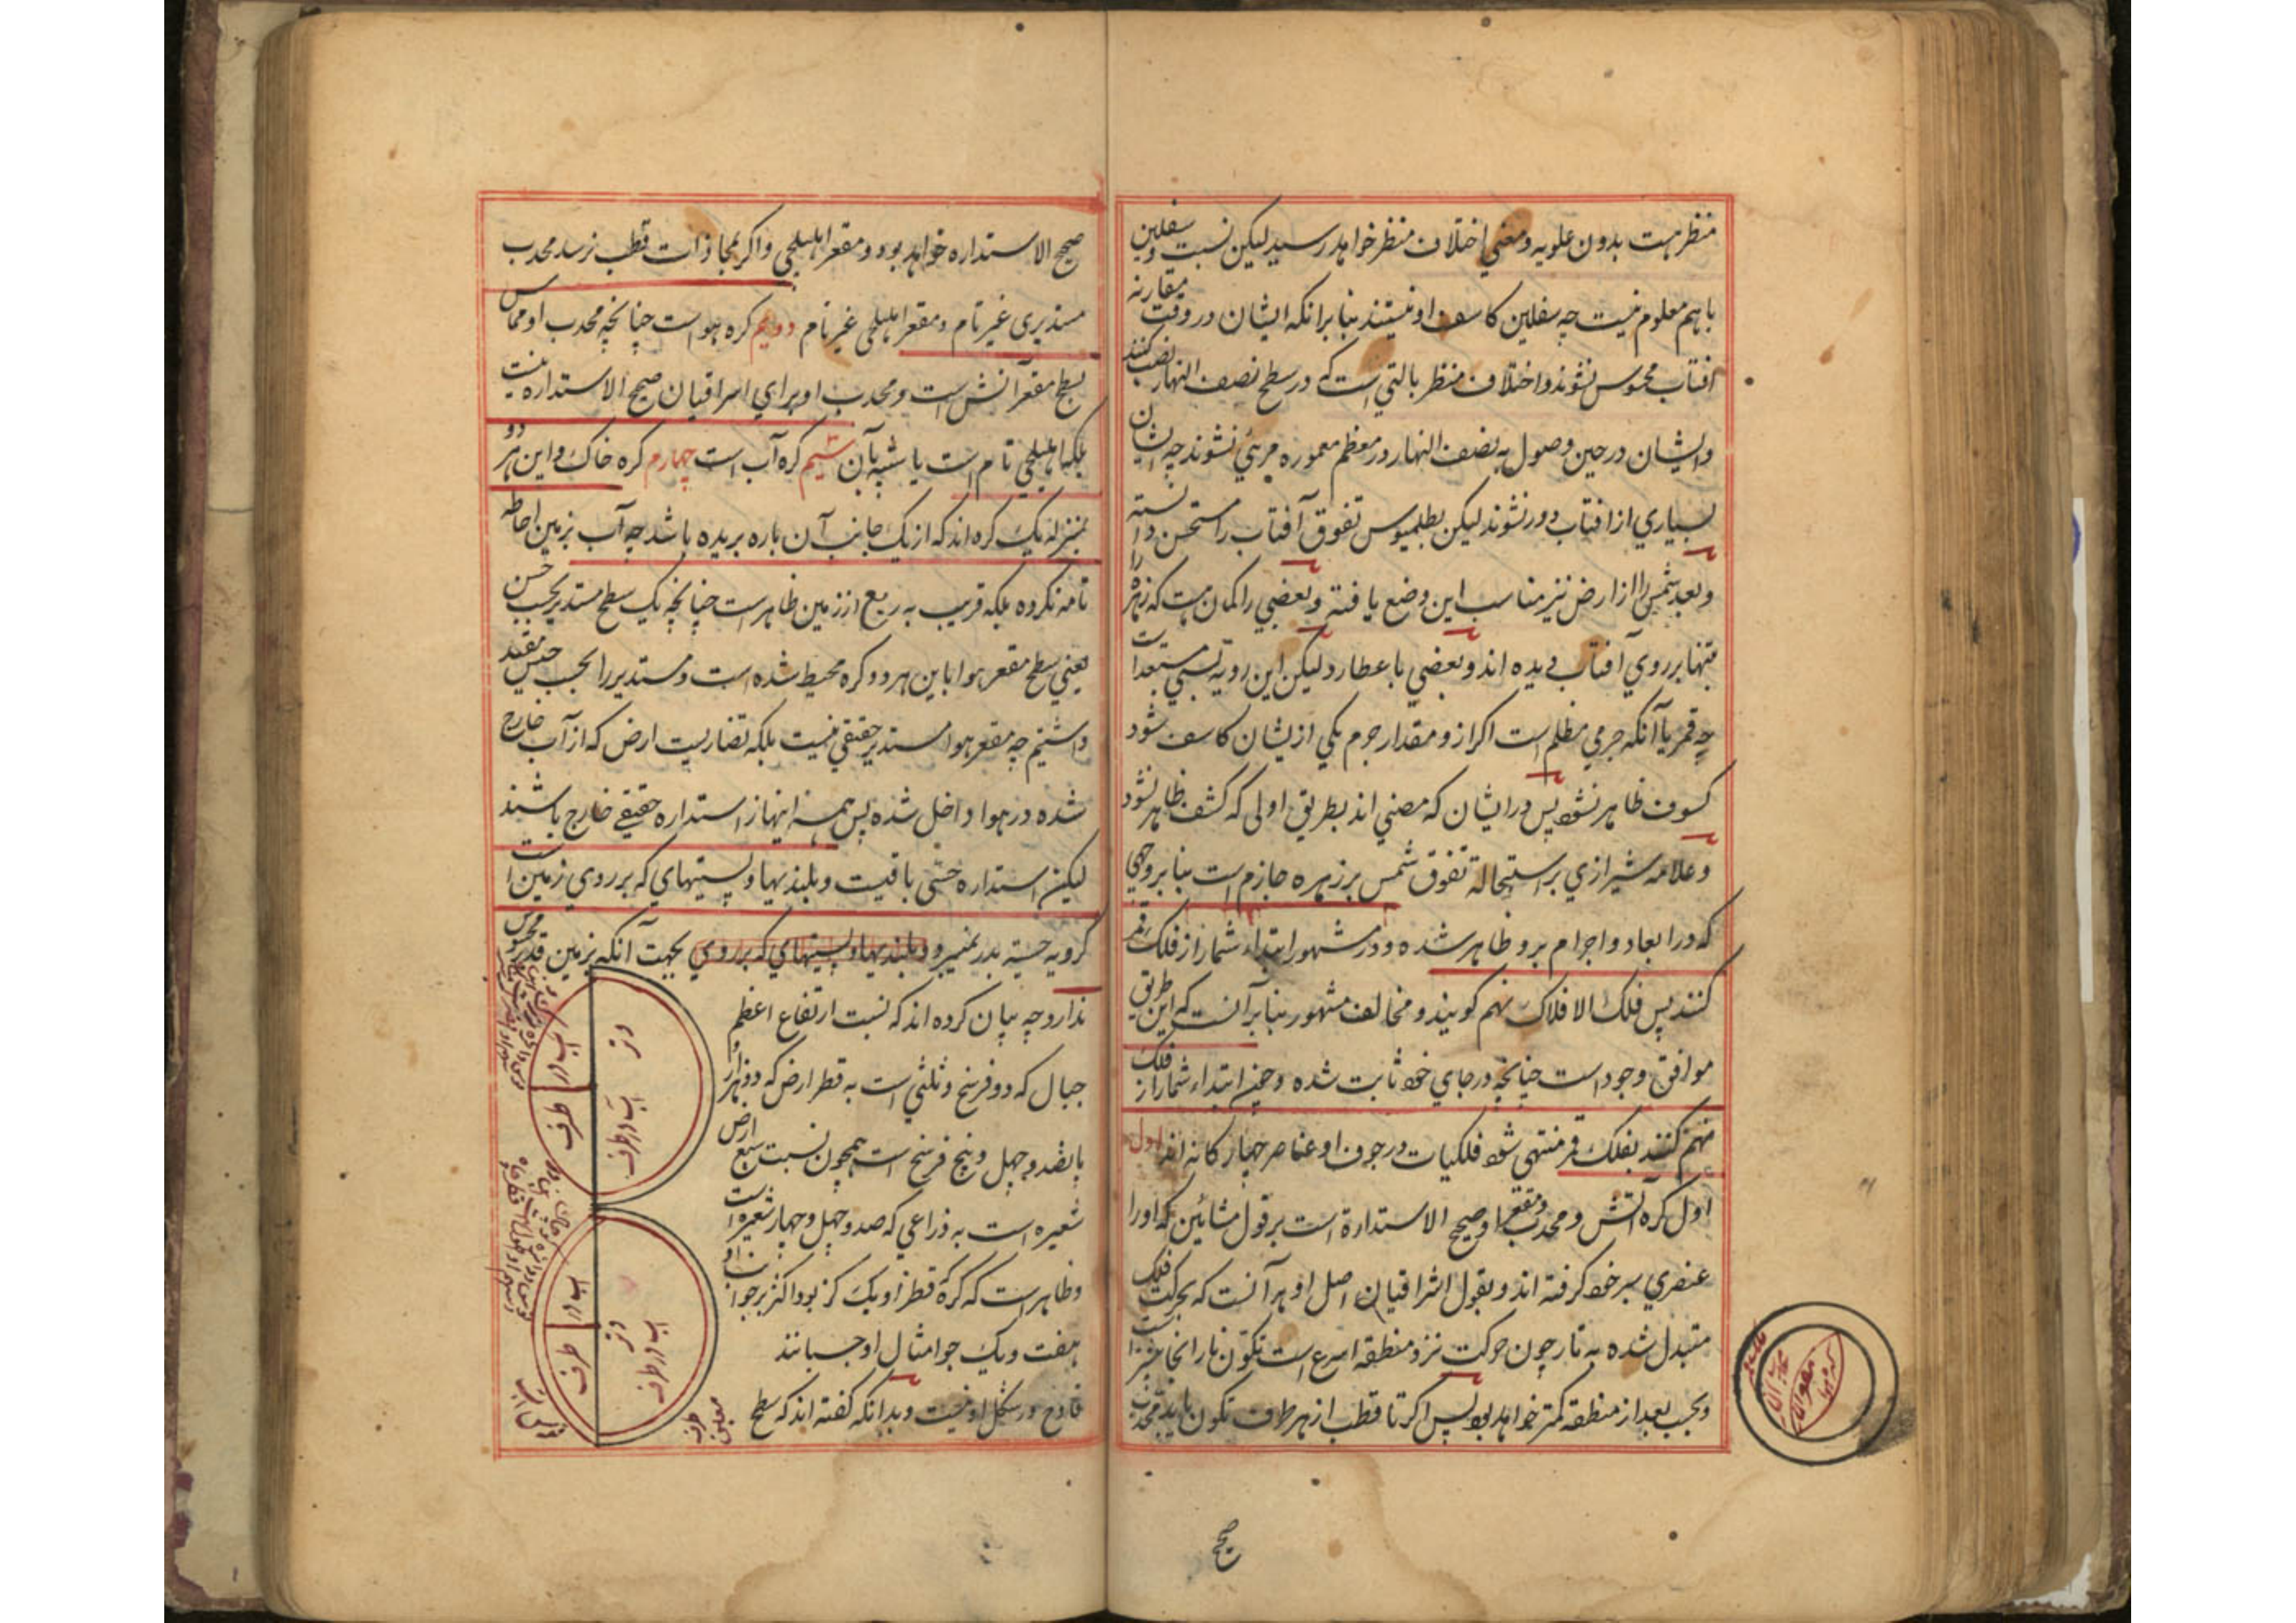 منظر هست بدون علویه و معنی اختلاف منظر خواهد رسید لیکن نسبت سفلیین
باهم معلوم نیست چه سفلیین کاسف او نیستند بنابر آنکه ایشان در وقت مقارنه
افتاب محسوس نشوند و اختلاف منظر بالتی است که در سطح نصف النهار نصب کنند
و ایشان در حین وصول به نصف النهار در معظم معموره مرئی نشوند چه ایشان
بسیاری از افتاب دور نشوند لیکن بطلمیوس تفوق آفتاب را مستحسن دانسته
و بعد شمس را از ارض نیز مناسب این وضع یافته و بعضی را کمان هست که زهره را
تنها بر روی آفتاب دیده اند و بعضی با عطارد لیکن این رویة بسی مستبعد است
چه قمر با آنکه جرمی مظلم است اکر از و مقدار جرم یکی از یشان کاسف شود
کسوف ظاهر نشود پس در ایشان که مضئی اند بطریق اولی که کشف ظاهر نشود
و علامه شیرازی بر استحالة تفوق شمس بر زهره جازم است بنابر وجهی
که در ابعاد و اجرام برو ظاهر شده و در مشهور ابتداء شمار از فلک قمر
کنند پس فلک الافلاک نهم کویند و مخالف مشهور بنابر آنست که این طریق
موافق وجود است چنانچه در جای خود ثابت شده و چون ابتداء شمار از فلک
نهم کنند بفلک قمر منتهی شود فلکیات در جوف او عناصر چهارکانه اند اول
اول کره آتش و محدب و مقعر او صحیح الاستدارة است بر قول مشائین که اورا
عنصری سر خود کرفته اند و بقول اشراقیان اصل او هر آنست که بحرکت فلک
متبدل شده به نار چون حرکت نزد منطقه اسرع است تکون نار انجا بیشتر است
و بحسب بعد از منطقه کمتر خواهد بود پس اکر تا قطب از هر طرف تکون یابد محدب
صحیح
صحیح الاستداره خواهد بود و مقعر اهلیلجی و اکر بمحاذات قطب نرسد محدب
مستدیری غیر تام و مقعر اهلیلجی غیر تام دویم کره هواست چنانچه محدب او مماس
بسطح مقعر آتش است و محدب او برای اسراقیان صحیح الاستداره نیست
بلکه اهلیلجی تام است یا شبیه بآن سیم کره آب است چهارم کره خاک و این هر دو
بمنزله یک کره اند که از یک جانب آن باره بریده باشد چه آب بزمین احاطه
تامه نکرده بلکه قریب به ربع از زمین ظاهر است چنانچه یک سطح مستدیر بحسب حس
یعنی سطح مقعر هوا باین هر دو کره محیط شده است و مستدیر را بحسب حس مقید
داشتیم چه مقعر هوا مستدیر حقیقی نیست بلکه تضاریست ارض که از آب خارج
شده در هوا داخل شده پس همه اینها از استداره حقیقی خارج باشند
لیکن استداره حسی باقیست و بلندیها و پستیهای که بر روی زمین است
کرویه حسیه بدر نمیبرد و بلندیها و پستیهای که بر روی بجهت آنکه بزمین قدر محسوس
ندارد چه بیان کرده اند که نسبت ارتفاع اعظم
جبال که دو فرسخ و ثلثی است به قطر ارض که دو هزار و
پانصد و چهل و پنج فرسخ است همچون نسبت سبع ارض
شعیره است به ذراعی که صد و چهل و چهار شعیره است
و ظاهر است که کرهٔ قطر او یک کز بود اکثر بر جوانب او
هفت و یک جو امثال او چسبانند
قادح در شکل او نیست و بدانکه کفته اند که سطح